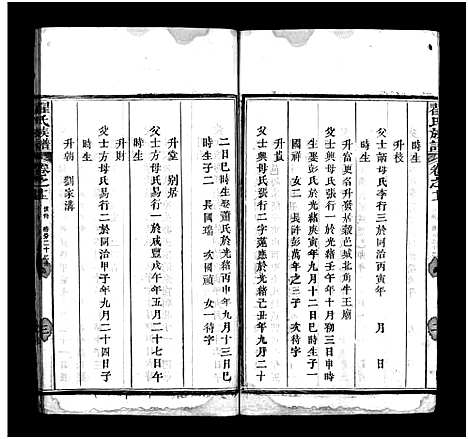 翟氏族譜
卷之十
時生
升枝
父士諾母氏李行三於同治丙寅年 月 日
時生
升富更名升發居穀邑城北角牛王廟
父士興母氏張行一於光緒壬午年十月初三日申時
生娶彭氏於光緒庚寅年九月十二日巳時生子一
長許彭萬年之三子 次待字
升貴
父士興母氏張行二字蓮應於光緒己丑年九月二十
二日巳時生娶蕭氏於光緒丙申年九月十三日巳
時生子二 長國瑞 次國禎 女一待字
升堂 別居
父士方母氏易行一於咸豐戊午年五月二十七日午
時生
升財
父士方母氏易行二於同治甲子年九月二十四日子
時生
升朝 劉家溝
翟氏族譜
卷之十